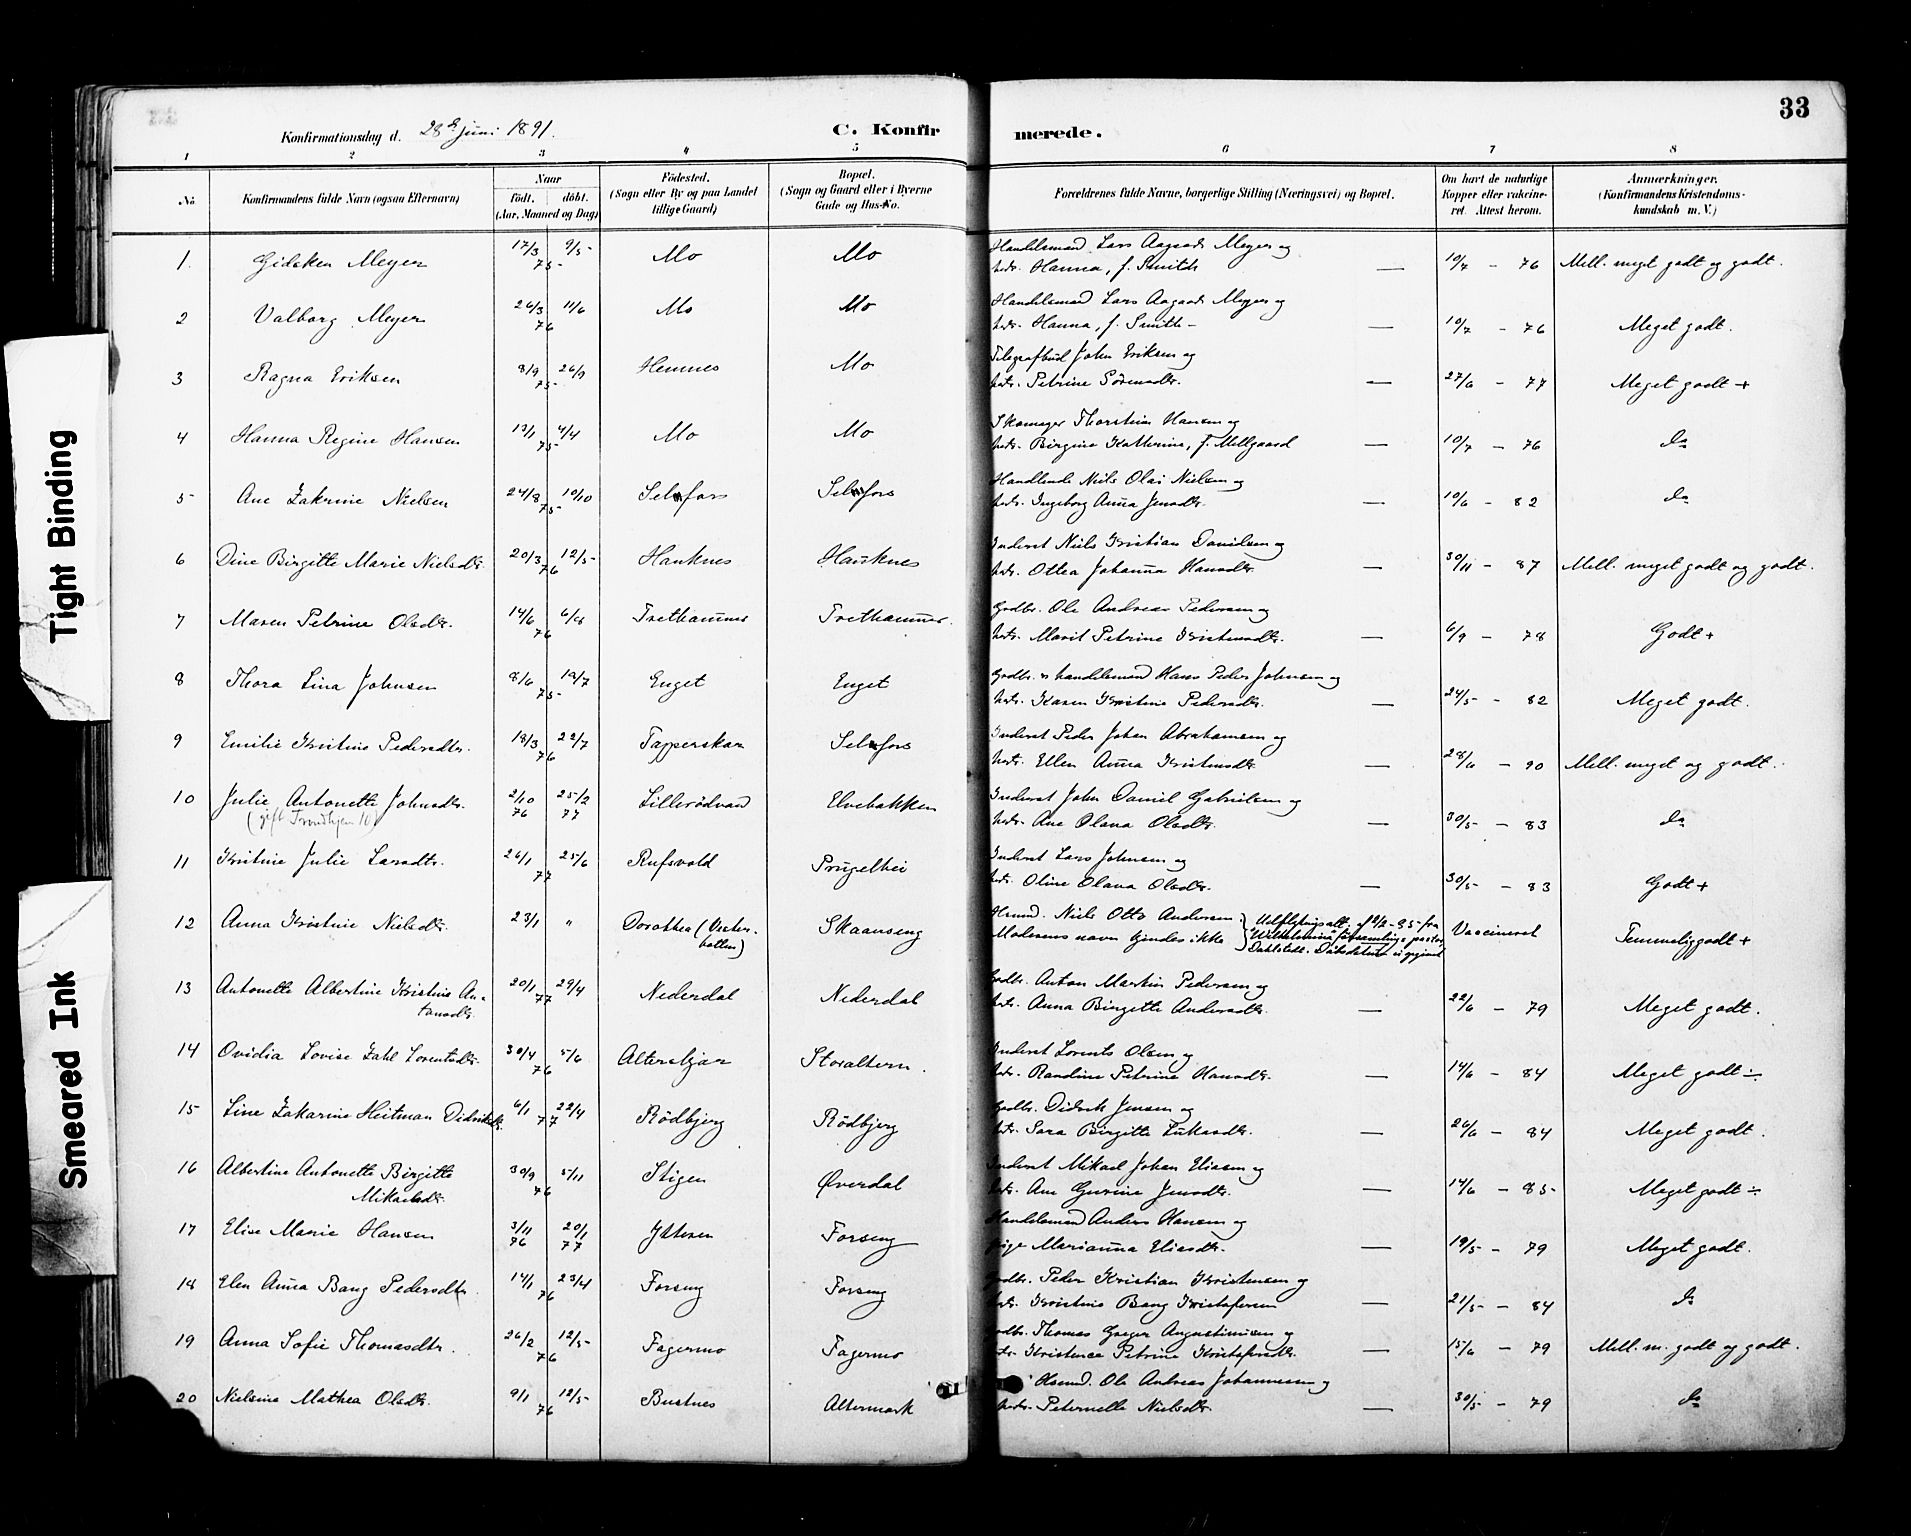 33
Konfirmationsdag d. 28de juni 1891.
C. Konfirmerede.
1 2 3 4 5 6 7 8
No. Konfirmandens fulde Navn (ogsaa Efternavn) Naar født. døbt. (Aar, Maaned og Dag) Fødested. (Sogn eller By og paa Landet tillige Gaard) Bopæl. (Sogn og Gaard eller i Byerne Gade og Hus-No. Forældrenes fulde Navne, borgerlige Stilling (Næringsvei) og Bopæl. Om havt de naturlige Kopper eller vakcineret. Attest herom. Anmerkninger. (Konfirmandens Kristendomskundskab m. V.)
1. Gidsken Meyer 17/3 9/5 75 Mo Mo Handelsmand Lars Aagaard Meyer og
hstr. Hanna, f. Smith — 10/7 - 76 Mell. meget godt og godt.
2 Valborg Meyer 26/3 11/6 76 Mo Mo Handelsmand Lars Aagaard Meyer og
hstr. Hanna, f. Smith — 10/7 - 76 Meget godt.
3 Ragna Eriksen 8/9 26/9 75 Hemnes Mo Telegrafbud John Eriksen og
hstr. Petrine Sørensdtr. — 27/6 - 77 Meget godt +
4 Hanna Regine Hansen 4/4 75 Mo Mo Skomager Thorstein Hansen og
hstr. Birgine Katherine, f. Mellgaard — 10/7 - 76 do
5 Ane Zakrine Nielsen 24/8 10/10 75 Selfors Selfors Handlende Niels Olai Nielsen og
hstr. Ingeborg Anna Jensdtr. — 10/6 - 82 do
6 Dine Birgitte Marie Nielsdtr. 20/3 12/5 76 Hauknes Hauknes Inderst Niels Kristian Danielsen og
hstr. Ottea Johanna Hansdtr. — 30/11 - 87 Mell. meget godt og godt.
7 Maren Petrine Olsdtr. 14/6 6/8 76 Trethammer Trethammer. Gbr. Ole Andreas Pedersen og
hstr. Marit Petrine Kristensdtr. — 6/9 - 78 Godt +
8 Thora Lina Johnsen 8/6 18/7 75 Enget Enget Gbr. & handelsmand Hans Peder Johnsen og
hstr. Karen Kristine Pedersdtr. — 24/5 - 82 Meget godt.
9 Emilie Kristine Pedersdtr. 18/3 22/7 76 Tapperskar Selfors Inderst Peder Johan Abrahamsen og
hstr. Ellen Anna Kristensdtr. — 28/6 - 90 Mell. meget og godt.
10 Julie Antonette Johnsdtr. 2/10 76 25/2 77 Lillerødvand Elvebakken Inderst John Daniel Gabrielsen og
(gift Trondhjem 10) hstr. Ane Olana Olsdtr. — 30/5 - 83 do
11 Kristine Julie Larsdtr. 26/1 25/6 77 Rufsvold Prugelhei Inderst Lars Johnsen og
hstr. Oline Olana Olsdtr. — 30/5 - 83 Godt +
12 Anna Kristine Nielsdtr. 23/1 " Dorothea (Vesterbotten) Skaanseng Hsmd. Niels Otto Andersen
Moderens navn kjendes ikke Udflytningsatt. af 2/2 - 95 fra
"Wilhelmina" församlings pastor
Dahlstedt. Vaccineret Temmelig godt +
13 Antonette Albertine Kristine Antonsdtr. 20/1 29/4 77 Nederdal Nederdal Gbr. Anton Martin Pedersen og
hstr. Anna Birgitte Andersdtr. — 22/6 - 79 Meget godt.
14 Ovidia Lovise Zahl Lorentsdtr. 30/4 5/6 76 Alterskjær Storaltern. Inderst Lorents Olsen og
hstr. Randine Petrine Hansdtr. — 14/6 - 84 Meget godt ÷
15 Line Zakarine Heitman Didriksdtr. 6/1 22/4 77 Rødbjerg Rødbjerg Gbr. Didrik Jensen og
hstr. Sara Birgitte Lukasdtr. — 26/6 - 84 Meget godt.
16 Albertine Antonette Birgitte
Mikaelsdtr. 30/9 5/11 76 Stigen Øverdal Inderst Mikael Johan Eliasen og
hstr. Ane Gurine Jensdtr. — 14/6 - 85 Meget godt ÷
17 Elise Marie Hansen 3/11 76 20/1 77 Ytteren Forseng Handelsmand Anders Hansen og
pige Marianna Eliasdtr. — 19/5 - 79 Meget godt.
18 Elen Anna Bang Pedersdtr. 14/1 23/4 76 Forseng Forseng Gbr. Peder Kristian Kristensen og
hstr. Kristine Bang Kristofersen — 21/5 - 84 do
19 Anna Sofie Thomasdtr. 26/2 12/5 76 Fagermo Fagermo Gbr. Thomas Greger Augustinusen og
hstr. Kristence Petrine Kristofersdtr. — 15/6 - 79 Mell. m. godt og godt.
20 Nielsine Mathea Olsdtr. 9/1 12/5 76 Bustnes Altermark Hsmd. Ole Andreas Johannesen og
hstr. Peternelle Nielsdtr. — 30/5 - 79 do
Tight Binding
Smeared Ink